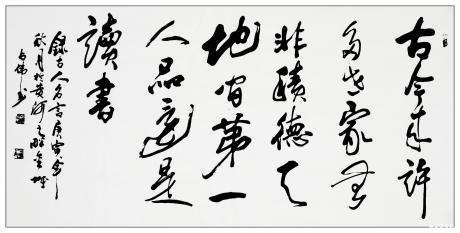 古今来許
多世家無
非積德天
地间第一
人品還是
讀書
録古人名言庚寅年
秋月於黄河之